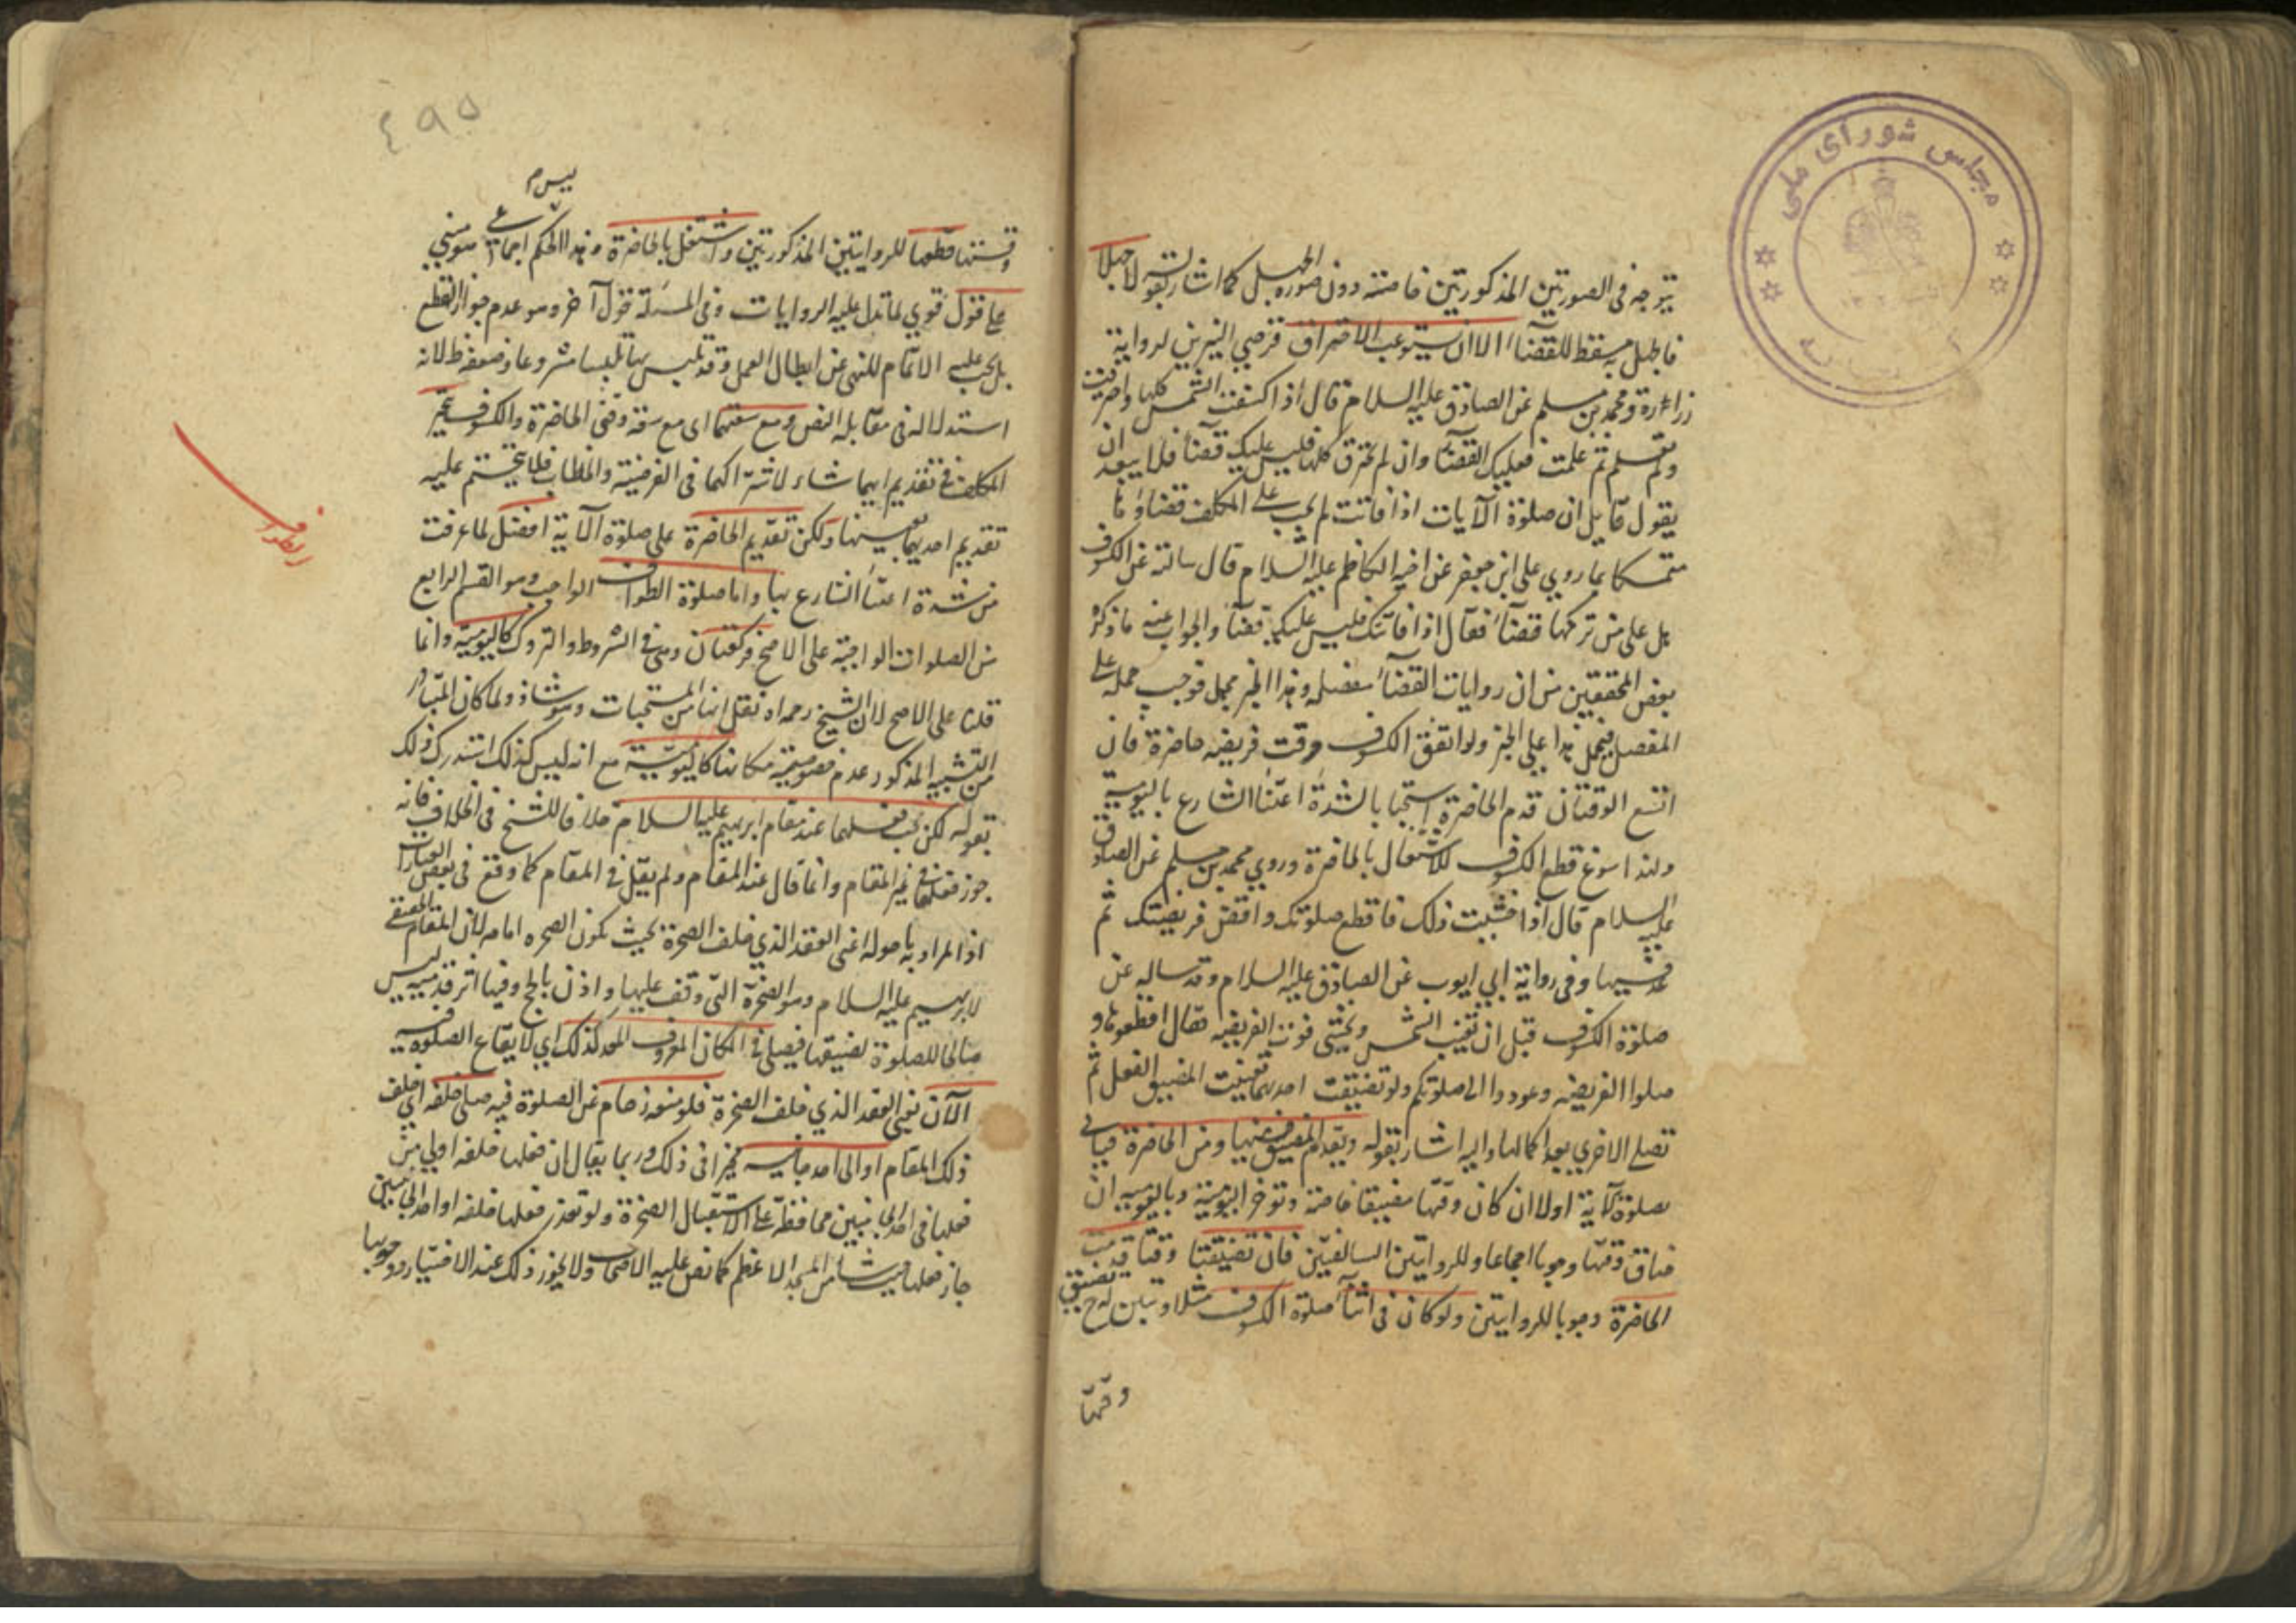 مجلس شورای ملی
يتوجه فى الصورتين المذكورتين خاصته دون صورة الجهل كما اشار بقوله لا جهلا
فالجهل به مسقط للقضآء الا ان يستوعب الاحتراق قرصي النيرين لرواية
زرارة ومحمد بن مسلم عن الصادق عليه السلام قال اذا اكسفت الشمس كلها واحترقت
ولم تعلم ثم علمت فعليك القضآء وان لم تحترق كلها فليس عليك قضآء فلا يبعد ان
يقول قايل ان صلوة الآيات اذا فاتت لم يجب على المكلف قضاؤها
متمسكا بما روي على ابن جعفر عن اخيه الكاظم عليه السلام قال سالته عن الكسوف
هل على من تركها قضآء فقال اذا فاتتك فليس عليك قضآء والجواب عنه ما ذكره
بعض المحققين من ان روايات القضآء مفصله وهذا الخبر مجمل فوجب حمله على
المفصل فيحمل هذا على الجز ولو اتفق الكسوف وقت فريضه حاضرة فان
اتسع الوقتان قدم الحاضرة استحبابا لشدة اعتنآء الشارع باليومية
ولهذا سوغ قطع الكسوف للاشتغال بالحاضرة وروي محمد بن مسلم عن الصادق
عليه السلام قال اذا خشيت ذلك فاقطع صلوتك واقض فريضتك ثم
عد فيها وفى رواية ابي ايوب عن الصادق عليه السلام وقد ساله عن
صلوة الكسوف قبل ان تغيب الشمس ويخشى فوت الفريضه فقال اقطعوها و
صلوا الفريضه وعودوا الى صلوتكم ولو تضيقت احديهما تعينت المضيق الفعل ثم
تصلى الاخري بعد اكمالها واليه اشار بقوله ويقدم المضيق منهما ومن الحاضرة فياتي
بصلوة الآية اولا ان كان وقتها مضيقا خاصته وتوخر اليومية وباليوميه ان
ضاق وقتها وجوبا اجماعا وللروايتين السالفتين فان تضيقتا وقتا قدمت
الحاضرة وجوبا للروايتين ولو كان فى اثنآء صلوة الكسوف مثلا وتبين له ح تضيق
وقتها
٤٩٥
وقتها قطعها للروايتين المذكورتين واشتغل بالحاضرة وهذا الحكم اجماعي ومبني
على قول قوي لما تدل عليه الروايات وفى المسئلة قول آخر وهو عدم جواز القطع
بل يجب عليه الاتمام للنهى عن ابطال العمل وقد تلبس بها تلبسا مشروعا وضعفه ظ لانه
استدلاله فى مقابله النص ومع سعتهما اى مع سعة وقتى الحاضرة والكسوف يتخير
المكلف فى تقديم ايهما شاء لاشتراكهما فى الفرضيته والخطاب فلا يتحتم عليه
تقديم احديهما بعينها ولكن تقديم الحاضرة على صلوة الآية افضل لما عرفت
من شدة اعتنآء الشارع بها واما صلوة الطواف الواجب وهو القسم الرابع
من الصلوات الواجبة على الاصح فركعتان وهى فى الشروط والتروك كاليومية وانما
قلنا على الاصح لان الشيخ رحمه اه نقل انها من المستحبات وهو شاذ ولما كان المتبادر
من التشبيه المذكور عدم خصوصيته مكانها كاليومية مع انه ليس كذلك استدرك ذلك
بقوله لكن يجب فعلهما عند مقام ابرهيم عليه السلام خلافا للشيخ فى الخلاف فانه
جوز فعلها فى غير المقام وانما قال عند المقام ولم يقل فى المقام كما وقع فى بعض العبارات
اذ المراد به ما حوله اعنى العقد الذي خلف الصخرة بحيث يكون الصخره امامه لان المقام الحقيقى
لابرهيم عليه السلام وهو الصخرة التى وقف عليها واذن بالحج وفيها اثر قدميه ليس
صالحا للصلوة لضيقها فيصلى فى المكان المعروف المعد كذلك اي لايقاع الصلوة فيه
الآن يعنى العقد الذي خلف الصخرة فلو منعه زحام عن الصلوة فيه صلى خلفه اى خلف
ذلك المقام او الى احد جانبيه مخيرا فى ذلك وربما يقال ان فعلها خلفه اولى من
فعلها فى احد الجانبين محافظة على الاستقبال الصخرة ولو تعذر فعلها خلفه او احد الجانبين
جاز فعلها حيث شاء من المسجد الاعظم كما نص عليه الاصحاب ولا يجوز ذلك عند الاختيار ووجوبها